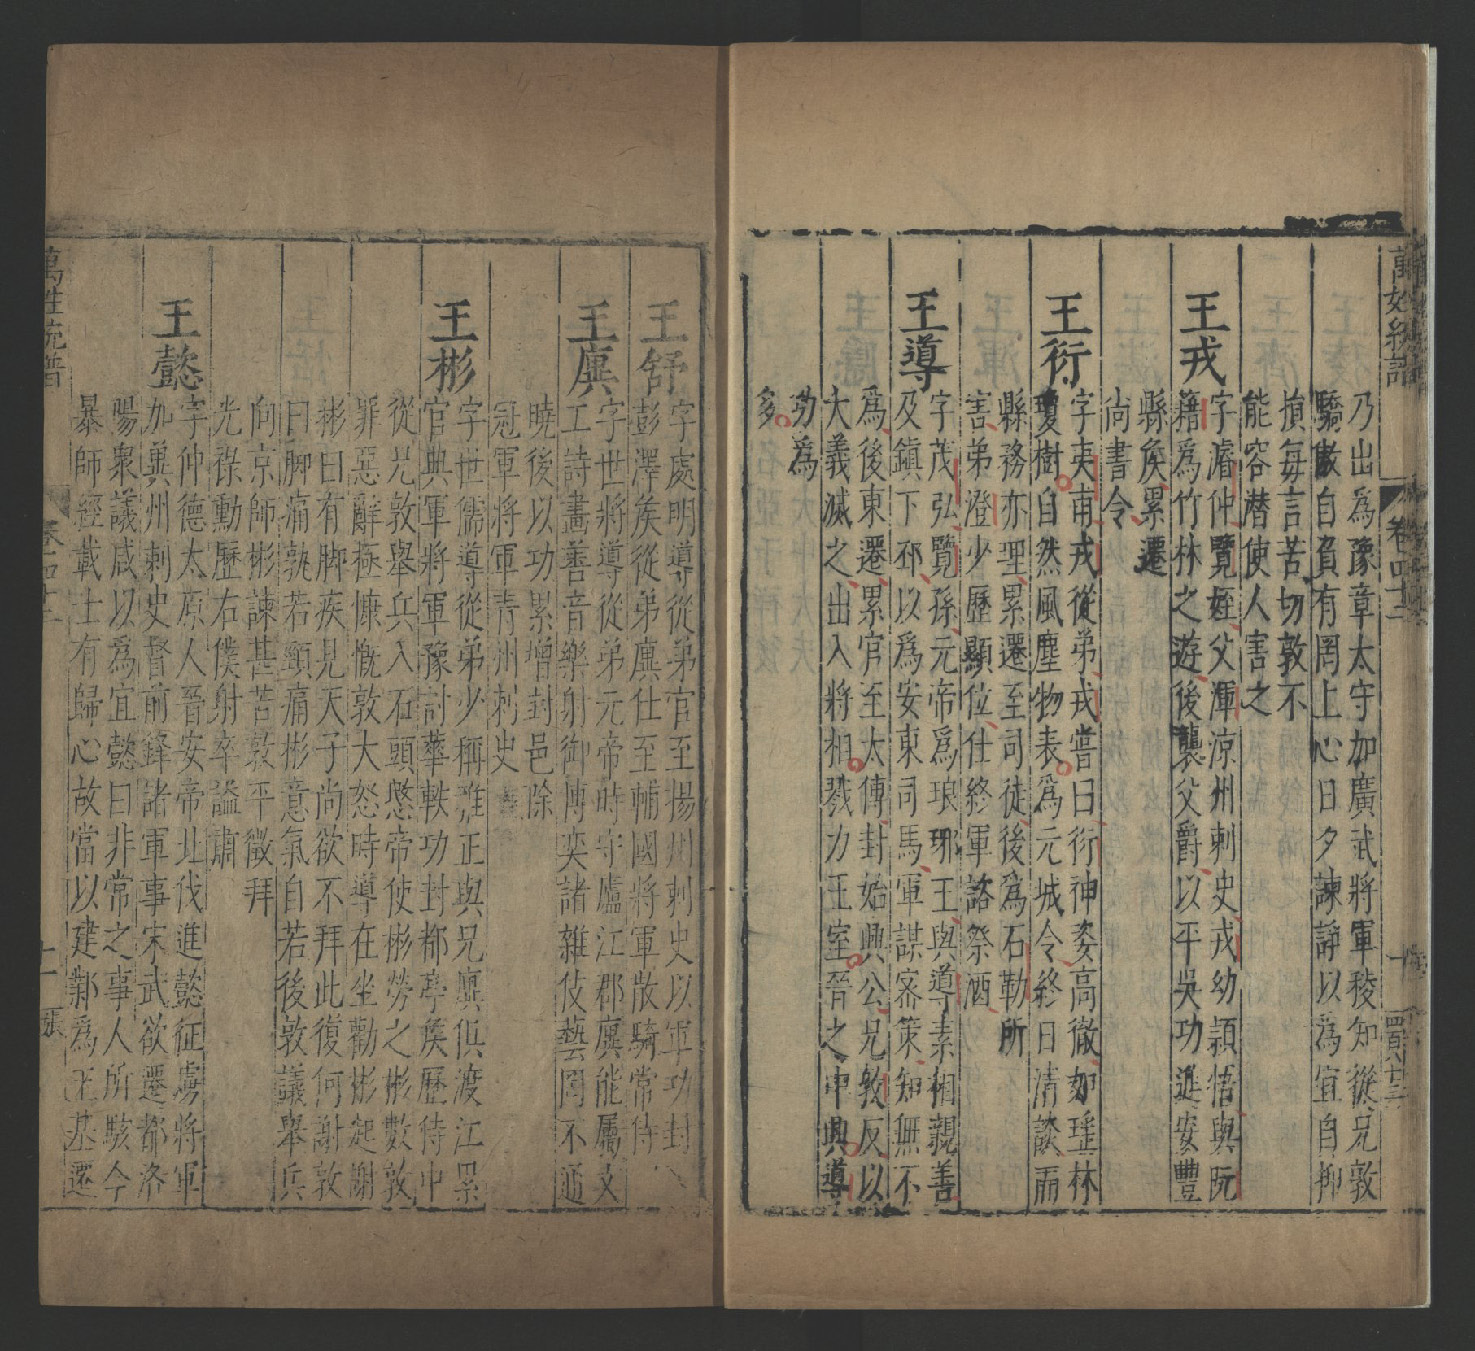 萬姓統譜 卷四十三 十 四百六十三
乃出為豫章太守加廣武將軍稜知從兄敦
驕傲自負有罔上心日夕諫諍以為宜自抑
損每言苦切敦不
能容潛使人害之
王戎
字濬仲覽姪父渾涼州刺史戎幼穎悟與阮
籍為竹林之遊後襲父爵以平吳功進安豐
縣矦累遷
尚書令
王衍
字夷甫戎從弟戎嘗曰衍神姿高徹如瑤林
瓊樹自然風塵物表為元城令終日清談而
縣務亦理累遷至司徒後為石勒所
害弟澄少歷顯位仕終軍諮祭酒
王導
字茂弘覽孫元帝為琅琊王與導素相親善
及鎮下邳以為安東司馬軍謀密策知無不
為後東遷累官至太傅封始興公兄敦反以
大義滅之出入將相戮力王室晉之中興導
功為
多
王舒
字處明導從弟官至揚州刺史以軍功封
彭澤矦從弟廙仕至輔國將軍散騎常侍
王廙
字世將導從弟元帝時守廬江郡廙能屬文
工詩畫善音樂射御博奕諸雜伎藝罔不通
曉後以功累增封邑除
冠軍將軍青州刺史
王彬
字世儒導從弟少稱雅正與兄廙俱渡江累
官典軍將軍豫討華軼功封都亭矦歷侍中
從兄敦舉兵入石頭愍帝使彬勞之彬數敦
罪惡辭極慷慨敦大怒時導在坐勸彬起謝
彬曰有脚疾見天子尚欲不拜此復何謝敦
曰脚痛孰若頸痛彬意氣自若後敦議舉兵
向京師彬諫甚苦敦平徵拜
光祿勳歷右僕射卒謚肅
王懿
字仲德太原人晉安帝北伐進懿征虜將軍
加冀州刺史督前鋒諸軍事宋武欲遷都洛
陽衆議咸以為宜懿曰非常之事人所駭今
暴師經載士有歸心故當以建鄴為王基遷
萬姓統譜 卷四十三 十一 張